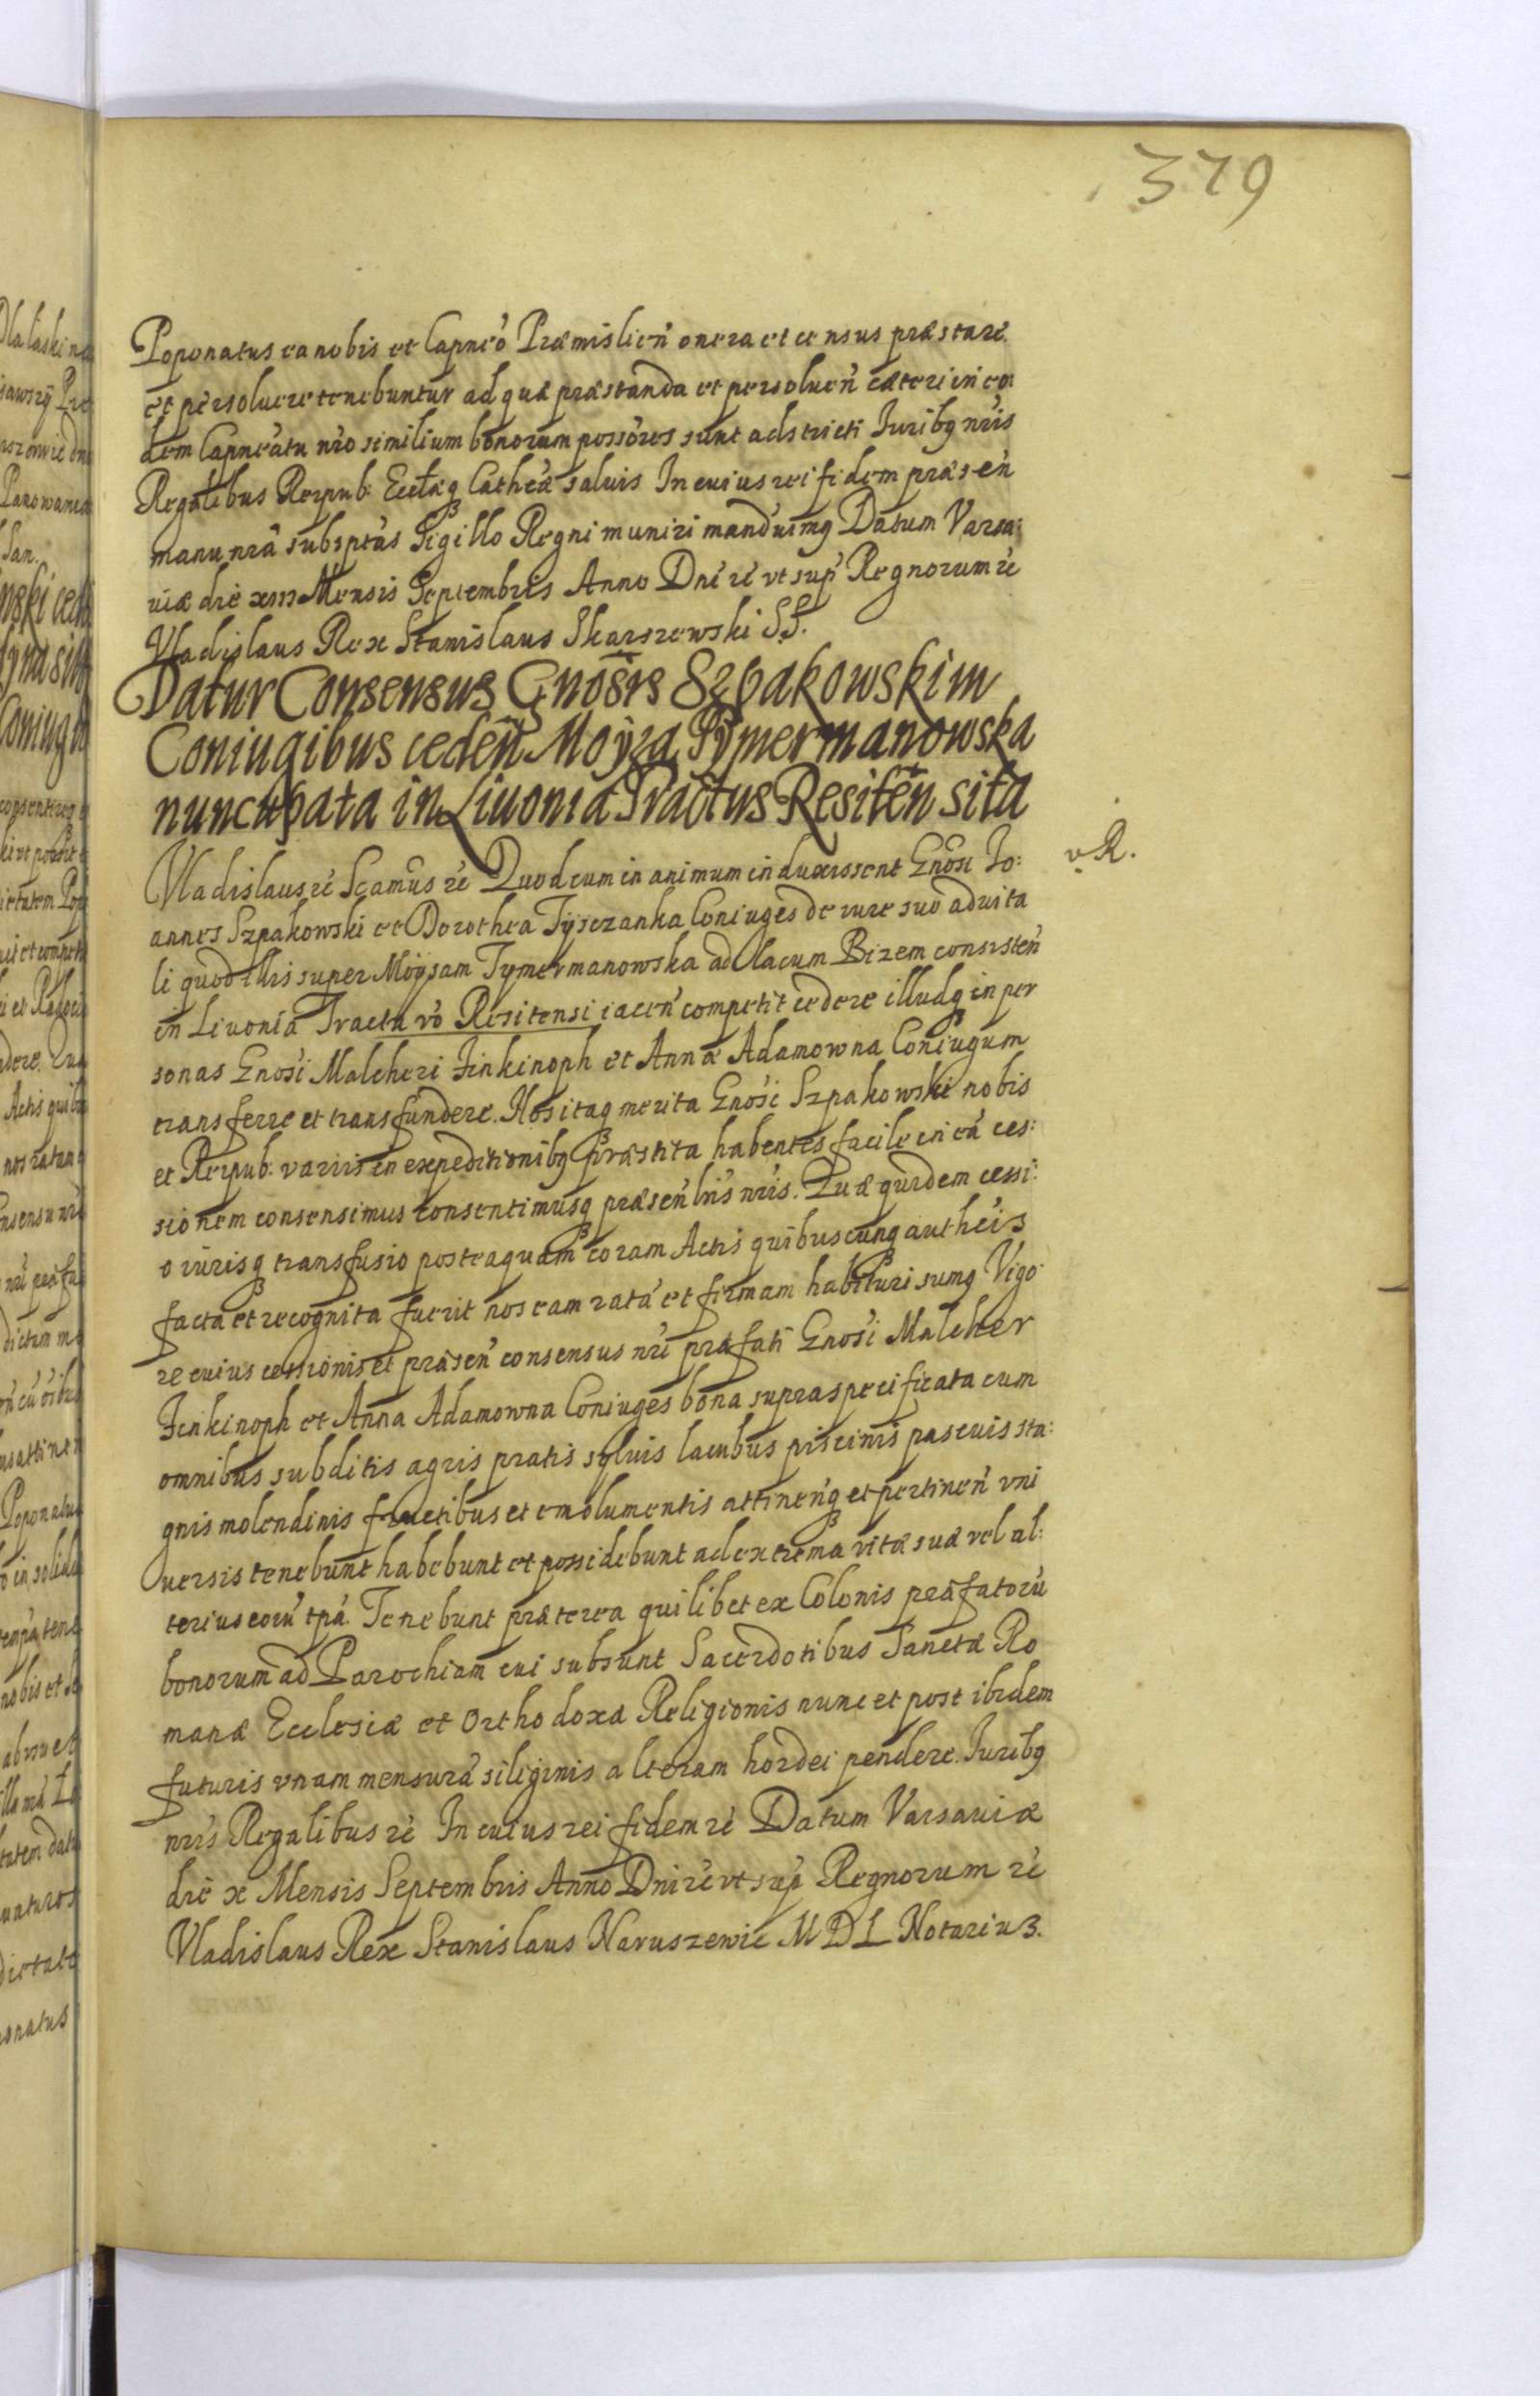 379
Poponatus ea nobis et Capneo Præmislien̄ onera et census præstare.
et persoluere tenebuntur ad quæ præstanda et persoluen̄ cæteri in eo
dem Capneatu nr̄o similium bonorum possores sunt adstricti Juribq nr̄is
Regalibus Reipub: Ecclæq Catheæ saluis In cuius rei fidem præsen̄
manu nr̄a subsptas Sigillo Regni muniri manduimq Datum Varsa:
uiæ die XIII Mensis Septembris Anno Dn̄i rē vt sup̄ Regnorum rē
Vladislaus Rex Stanislaus Skarszewski SS.
Datur Consensus Gnōsis Szpakowskim
Coniugibus ceden̄ Moÿza Tymermanowska
nuncupata in Liuonia Tractus Resiten̄ sita
v R.
Vladislaus rē Scamus rē Quod cum in animum induxissent Gnōsi Jo:
annes Szpakowski et Dorothea Tysczanka Coniuges de iure suo aduita
li quod illis super Moÿsam Tymermanowska ad lacum Bizem consisten̄
in Liuonia Tractu vō Resitensi iacen̄ competit cedere illudq in per
sonas Gnōsi Malcheri Finkinoph et Annæ Adamowna Coniugum
transferre et transfundere. Nos itaq merita Gnōsi Szpakowski nobis
et Reipub: variis in expeditionibq præstita habentes facile in eā ces:
sionem consensimus consentimusq præsen̄ lr̄is nr̄is. Quæ quidem cessi:
o iurisq transfusio posteaquam coram Actis quibuscunq autheis
facta et recognita fuerit nos eam ratā et firmam habituri sumq Vigo
re cuius cessionis et præsen̄ consensus nr̄i præfati Gnōsi Malcher
Finkinoph et Anna Adamowna Coniuges bona supraspecificata cum
omnibus subditis agris pratis syluis lacubus piscinis pascuis sta:
gnis molendinis fructibus et emolumentis attinen̄q et pertinen̄ vni
uersis tenebunt habebunt et possidebunt ad extrema vitæ suæ vel al:
terius eorū tpā. Tenebunt præterea quilibet ex Colonis præfatorū
bonorum ad Parochiam cui subsunt Sacerdotibus Sanctæ Ro
manæ Ecclesiæ et Orthodoxæ Religionis nunc et post ibidem
futuris vnam mensurā siliginis alteram hordei pendere. Juribq
nr̄is Regalibus rē In cuius rei fidem rē Datum Varsauiæ
die X Mensis Septembris Anno Dn̄i rē vt sup̄ Regnorum rē
Vladislaus Rex Stanislaus Naruszewic M D L Notarius.